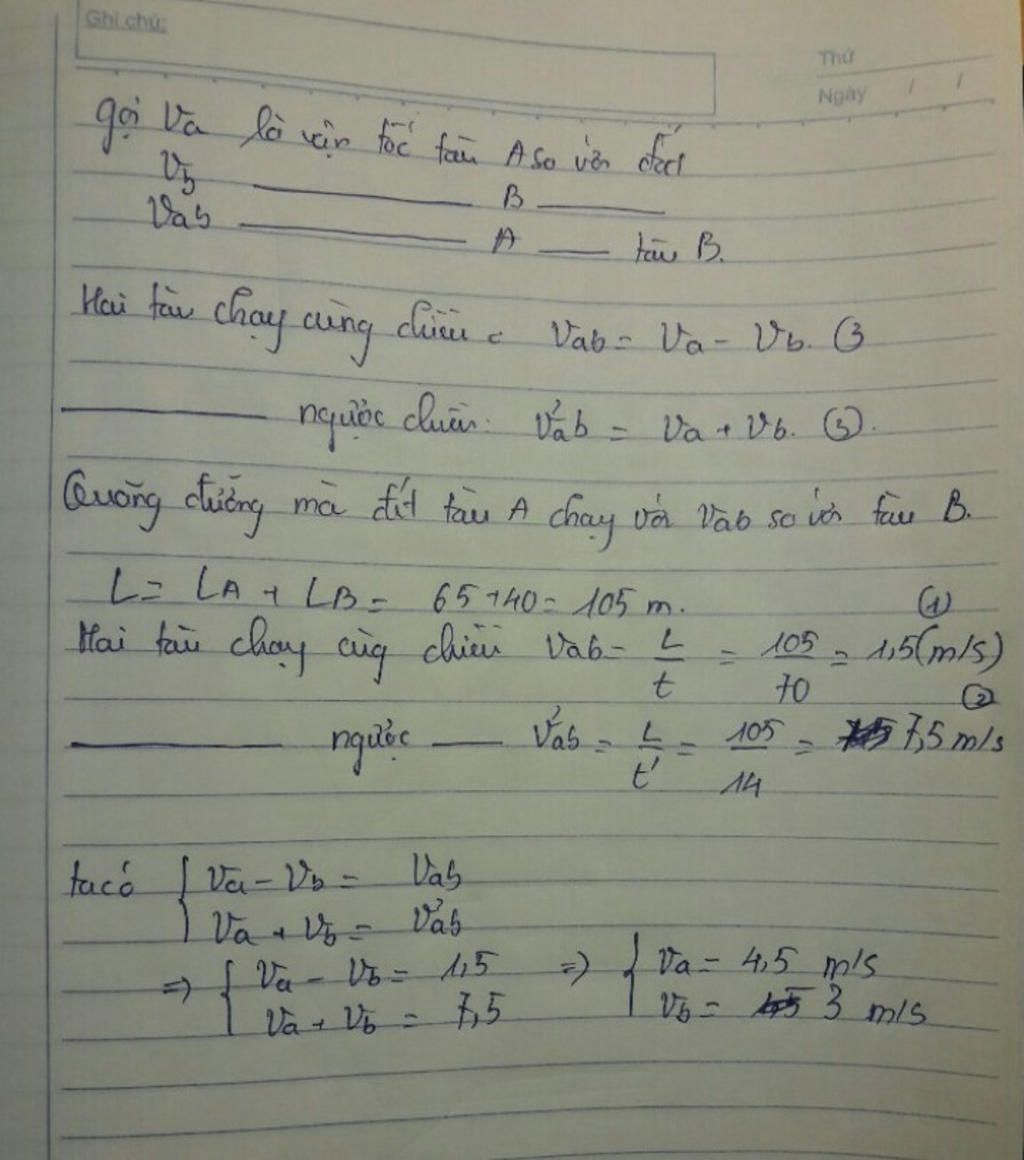 Ghi chú:
Thứ
Ngày / /
Gọi Va là vận tốc tàu A so với đất
Vb ——— B ———
Vab ——— A —— tàu B.
Hai tàu chạy cùng chiều: Vab = Va - Vb. (3
——— ngược chiều: V'ab = Va + Vb. (3).
Quãng đường mà đít tàu A chạy với Vab so với tàu B.
L = LA + LB = 65 + 40 = 105 m.
Hai tàu chạy cùg chiều Vab = L/t = 105/70 = 1,5 (m/s) (1)
——— ngược —— V'ab = L/t' = 105/14 = 7,5 m/s (2)
ta có { Va - Vb = Vab
Va + Vb = V'ab
=> { Va - Vb = 1,5 => { Va = 4,5 m/s
Va + Vb = 7,5 Vb = 3 m/s